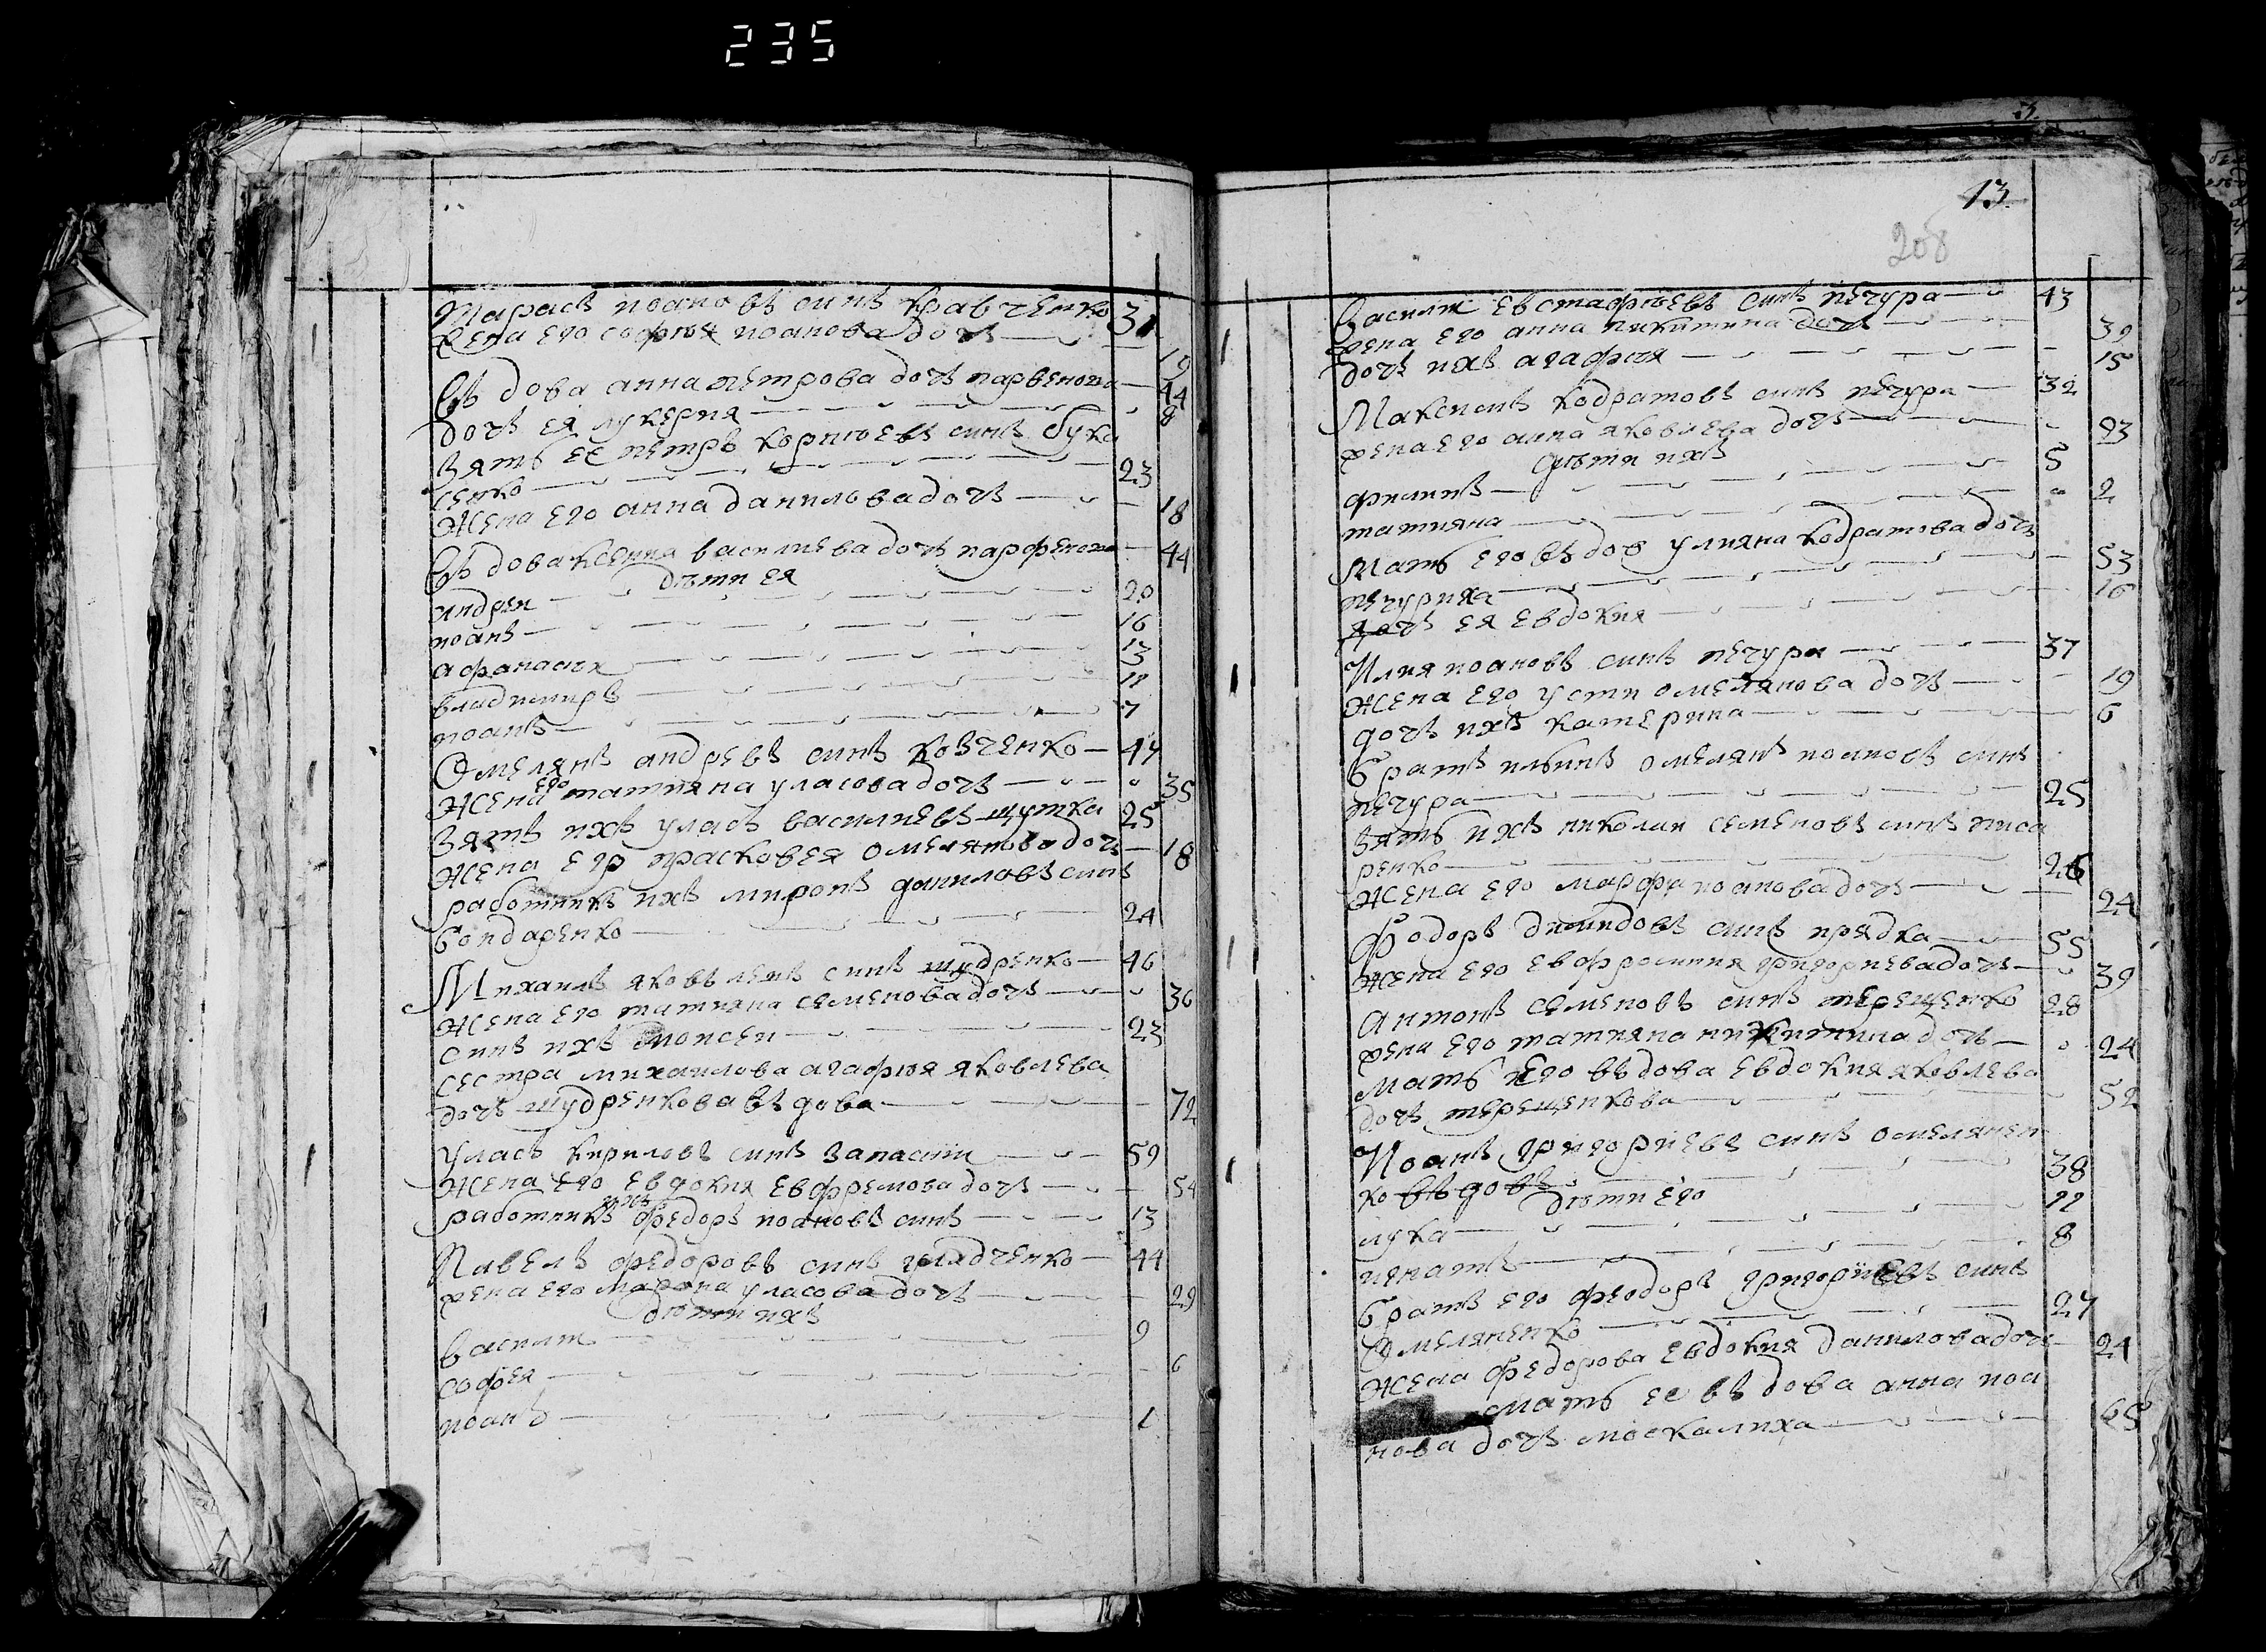 235
Тарасъ иоановъ синъ кравченко 31
Жена его софия иоанова дочъ 19
Въдова анна петрова дочъ 44
дочъ ея лукерия 8
Зять ее петръ корниевъ синъ бука
сенко 23
Жена его анна данилова дочъ 18
Въдова ксения василева дочъ 44
дѣти ея
андреи 20
иоанъ 16
афанасия 13
владимиръ 11
иоанъ 7
Омелянъ андревъ синъ козченко 47
Жена его татияна уласова дочъ 35
Зять ихъ уласъ василиевъ шутка 25
Жена его прасковея омелянова дочъ 18
работникъ ихъ миронъ даниловъ синъ
бондаренко 24
Михаилъ яковълевъ синъ шудренко 46
Жена его татияна семенова дочъ 36
синъ ихъ моисеи 23
сестра михаилова агафия яковлева
дочъ шудренкова въдова 72
Уласъ кириловъ синъ запасни 59
Жена его евдокия евфремова дочъ 54
работникъ ихъ федоръ иоановъ синъ 13
Павелъ федоровъ синъ гладченко 44
жена его марфа уласова дочъ 29
дѣти ихъ
василии 9
софея 6
иоанъ 1
13
208
Василии евстафиевъ синъ печура 43
жена его анна никитина дочъ 39
дочъ ихъ агафия 15
Максимъ кодратовъ синъ печура 32
жена его анна яковлева дочъ 23
дѣти ихъ
филипъ 5
татияна 2
Мать его въдов улияна кодратова дочъ
печуриха 53
дочъ ея евдокия 16
Илия иоановъ синъ печура 37
Жена его усти омелянова дочъ 19
дочъ ихъ катерина 6
Братъ илыинъ омелянъ иоановъ синъ
печура 25
Зять ихъ николаи семеновъ синъ писа
ренко 26
Жена его марфа иоанова дочъ 24
Фодоръ синъ прядка 55
Жена его евфросиния григориева дочъ 39
Антонъ семеновъ синъ терещенко 28
жена его татияна никитина дочъ 24
Мать его въдова евдокия яковлева
дочъ терещенкова 52
Иоанъ григориевъ синъ омелянен
ко въдовъ 38
дѣти его
лука 11
игнатъ 8
Братъ его феодоръ григориевъ синъ
Омеляненко 27
Жена федорова евдокия данилова дочъ 21
мать ее въдова анна иоа
нова дочъ москалиха 65